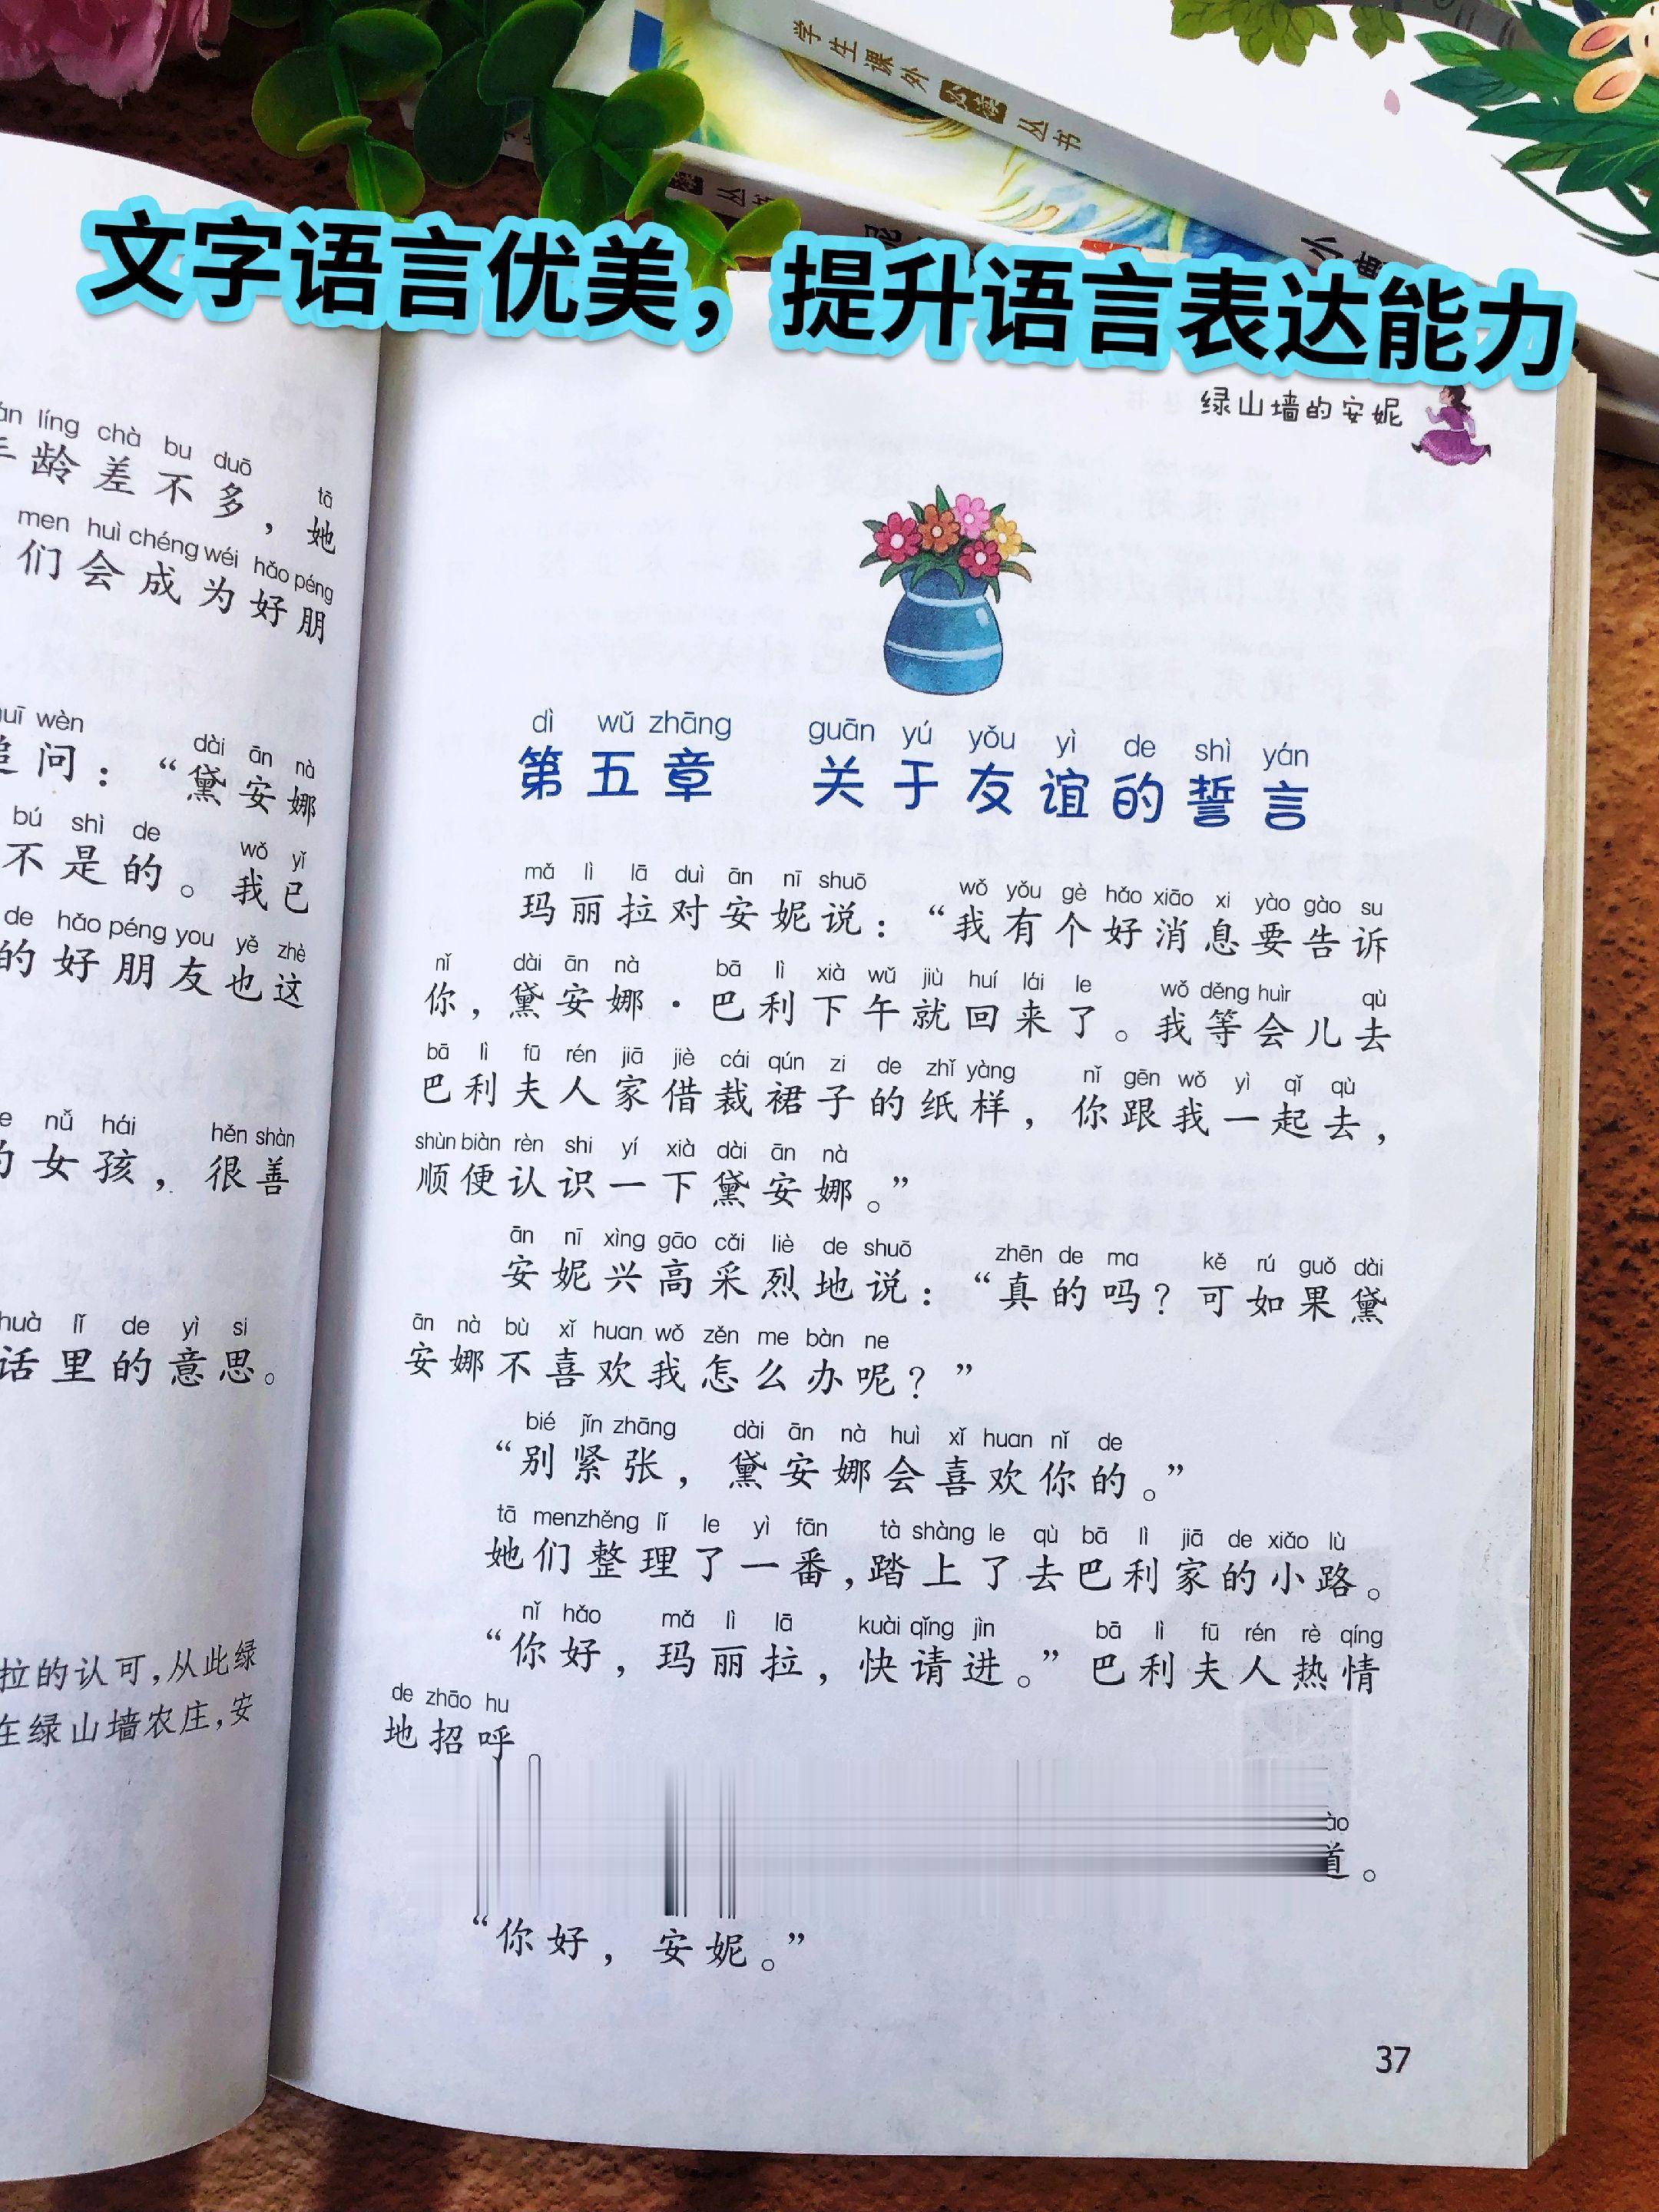 学生课外必读丛书
丛书
文字语言优美，提升语言表达能力
绿山墙的安妮
líng chà bu duō
龄差不多，
tā
她
men huì chéng wéi hǎo péng
们会成为好朋
wèn dài ān nà
追问：“黛安娜
bú shì de wǒ yǐ
不是的。我已
de hǎo péng you yě zhè
的好朋友也这
nǚ hái hěn shàn
的女孩，很善
huà lǐ de yì si
话里的意思。
拉的认可，从此绿
在绿山墙农庄，安
dì wǔ zhāng guān yú yǒu yì de shì yán
第五章 关于友谊的誓言
mǎ lì lā duì ān nī shuō wǒ yǒu gè hǎo xiāo xi yào gào su
玛丽拉对安妮说：“我有个好消息要告诉
nǐ dài ān nà bā lì xià wǔ jiù huí lái le wǒ děng huìr qù
你，黛安娜·巴利下午就回来了。我等会儿去
bā lì fū rén jiā jiè cái qún zi de zhǐ yàng nǐ gēn wǒ yì qǐ qù
巴利夫人家借裁裙子的纸样，你跟我一起去，
shùn biàn rèn shi yí xià dài ān nà
顺便认识一下黛安娜。”
ān nī xìng gāo cǎi liè de shuō zhēn de ma kě rú guǒ dài
安妮兴高采烈地说：“真的吗？可如果黛
ān nà bù xǐ huan wǒ zěn me bàn ne
安娜不喜欢我怎么办呢？”
bié jǐn zhāng dài ān nà huì xǐ huan nǐ de
“别紧张，黛安娜会喜欢你的。”
tā menzhěng lǐ le yì fān tà shàng le qù bā lì jiā de xiǎo lù
她们整理了一番，踏上了去巴利家的小路。
nǐ hǎo mǎ lì lā kuài qǐng jìn bā lì fū rén rè qíng
“你好，玛丽拉，快请进。”巴利夫人热情
de zhāo hu
地招呼
道。
“你好，安妮。”
37